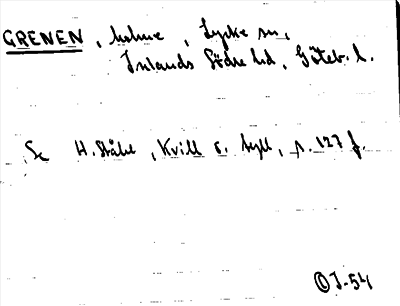 GRENEN, holme, Lycke sn,
Inlands Södra hd, Göteb. l.
Se H. Ståhl, Kvill o. tyll, s. 127 f.
OJ-54